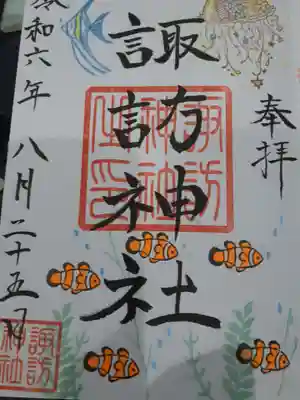 奉拝
諏訪神社
令和六年 八月二十五日
諏訪
神社
諏訪
神社